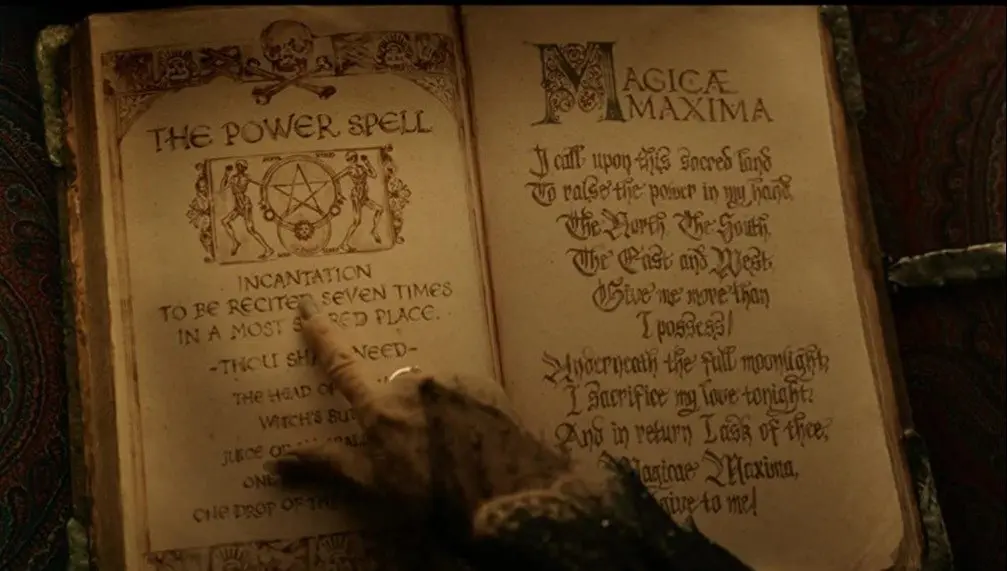 THE POWER SPELL
INCANTATION
TO BE RECITED SEVEN TIMES
IN A MOST SACRED PLACE.
-THOU SHALT NEED-
THE HEAD OF
WITCH'S BUT
JUICE OF
ONE
ONE DROP OF THE
MAGICÆ
MAXIMA
I call upon this sacred land
To raise the power in my hand,
The North, The South,
The East and West,
Give me more than
I possess!
Underneath the full moonlight,
I sacrifice my love tonight,
And in return I ask of thee,
Magicae Maxima,
give to me!